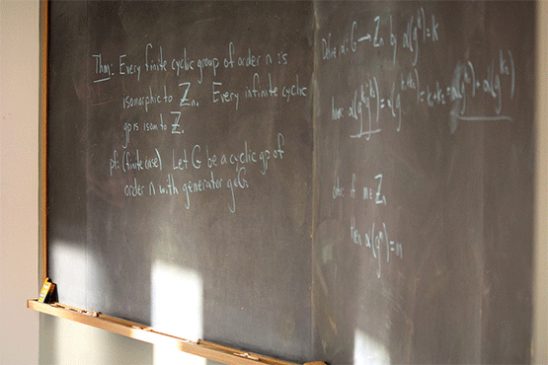 Thm: Every finite cyclic group of order n is
isomorphic to Zn. Every infinite cyclic
gp is isom to Z.
pf: (finite case) Let G be a cyclic gp of
order n with generator g∈G.
Define α: G → Zn by α(g^k) = k
α(g^k1 g^k2) = α(g^k1+k2) = k1+k2 = α(g^k1) + α(g^k2)
onto: if m ∈ Zn
then α(g^m) = m